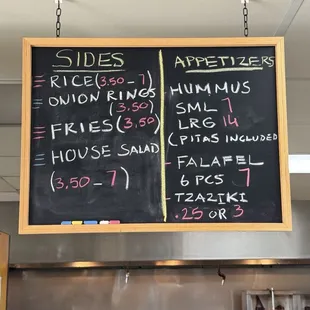 SIDES
RICE (3.50-7)
ONION RINGS
(3.50)
FRIES (3.50)
HOUSE SALAD
(3.50-7)
APPETIZERS
-HUMMUS
SML 7
LRG 14
(PITAS INCLUDED
-FALAFEL
6 PCS 7
-TZAZIKI
.25 OR 3